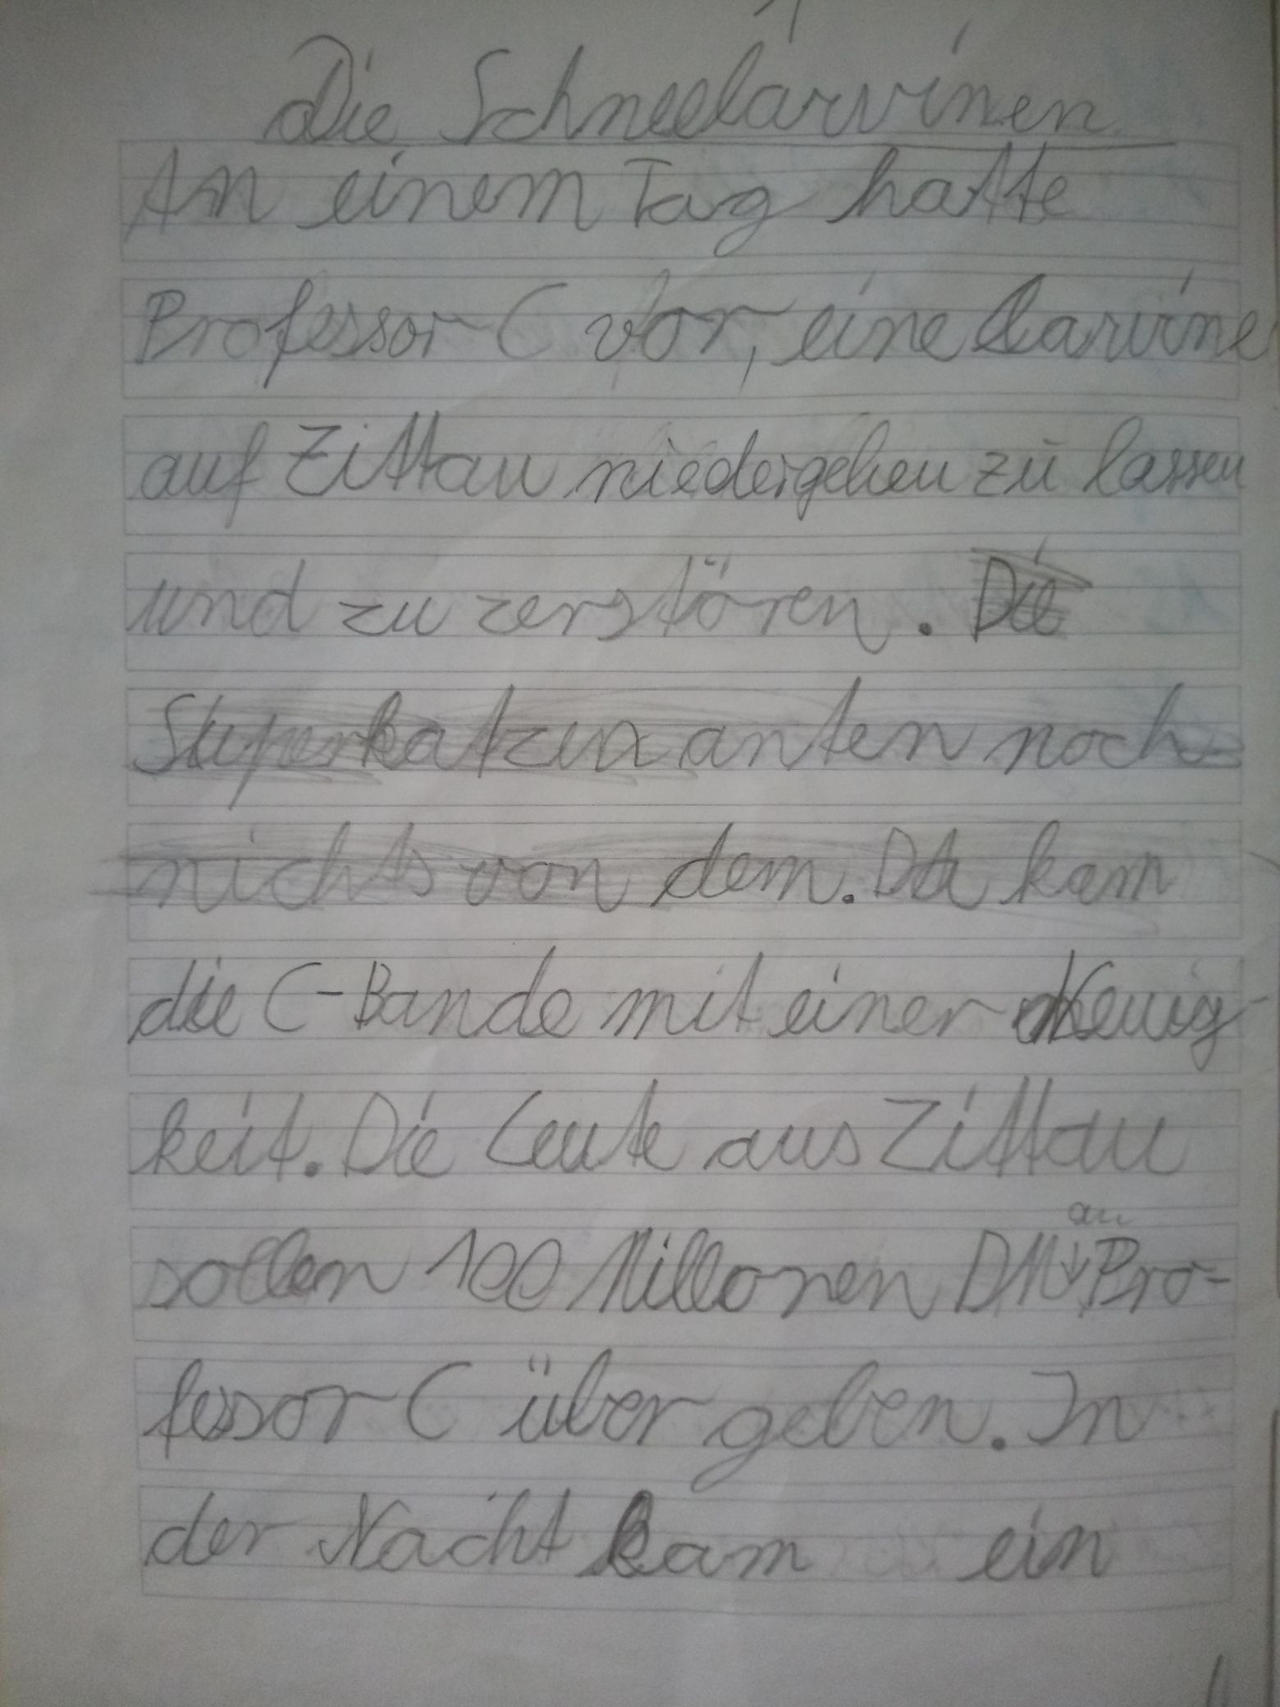 Die Schneelarvinen
An einem Tag hatte
Professor C vor, eine Larvine
auf Zittau niedergehen zu lassen
und zu zerstören. Die
Superkatzen anten noch
nichts von dem. Da kam
die C-Bande mit einer Neuig-
keit. Die Leute aus Zittau
sollen 100 Millonen DM an Pro-
fessor C übergeben. In
der Nacht kam ein